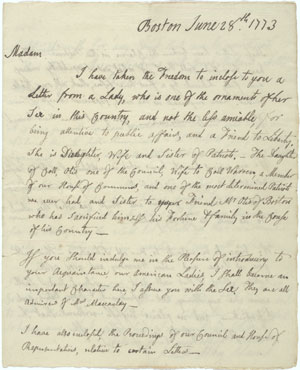 Boston June 28.th 1773
Madam
I have taken the Freedom to inclose to you a
Letter from a Lady, who is one of the ornaments of her
Sex in this Country, and not the less amiable for
being attentive to public affairs, and a Friend to Liberty.
She is Daughter, Wife and Sister of Patriots, — The Daughter
of Coll Otis one of the Council, Wife to Coll Warren a Member
of our House of Commons, and one of the most determined Patriots
we now had, and Sister to your Friend Mr Otis of Boston
who has sacrificed himself his Fortune & family in the Cause
of his Country —
If you should indulge me in the Pleasure of introducing to
your Acquaintance our american Ladies, I shall become an
important Character here I assure you with the Sex. They are all
Admirers of Mrs Macaulay —
I have also inclosed, the Proceedings of our Council and House of
Representatives, relative to certain Letters —